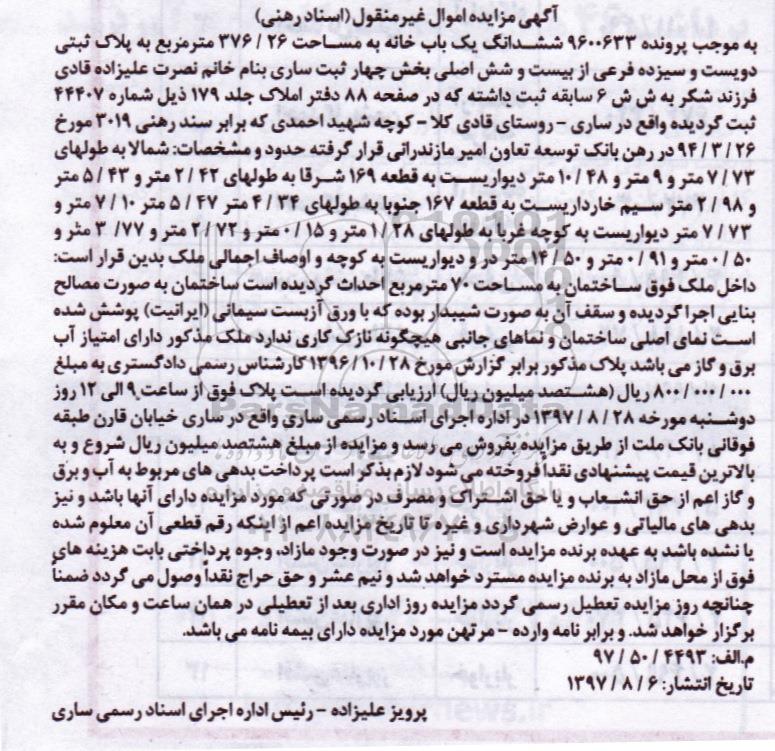 آگهی مزایده اموال غیر منقول (اسناد رهنی)
به موجب پرونده ۹۶۰۰۶۳۳ ششدانگ یک باب خانه به مساحت ۲۶ / ۳۷۶ مترمربع به پلاک ثبتی
دویست و سیزده فرعی از بیست و شش اصلی بخش چهار ثبت ساری بنام خانم نصرت علیزاده قادی
فرزند شکر به ش ش ۶ سابقه ثبت داشته که در صفحه ۸۸ دفتر املاک جلد ۱۷۹ ذیل شماره ۴۴۴۰۷
ثبت گردیده واقع در ساری - روستای قادی کلا - کوچه شهید احمدی که برابر سند رهنی ۳۰۱۹ مورخ
۲۶ / ۳ / ۹۴ در رهن بانک توسعه تعاون امیر مازندرانی قرار گرفته حدود و مشخصات: شمالا به طولهای
۷۳ / ۷ متر و ۹ متر و ۴۸ / ۱۰ متر دیواریست به قطعه ۱۶۹ شرقا به طولهای ۴۲ / ۲ متر و ۴۳ / ۵ متر
و ۹۸ / ۲ متر سیم خارداریست به قطعه ۱۶۷ جنوبا به طولهای ۳۴ / ۴ متر ۴۷ / ۵ متر ۱۰ / ۷ متر و
۷۳ / ۷ متر دیواریست به کوچه غربا به طولهای ۲۸ / ۱ متر و ۱۵ / ۰ متر و ۷۲ / ۲ متر و ۷۷ / ۲ متر و
۵۰ / ۰ متر و ۹۱ / ۰ متر و ۵۰ / ۱۴ متر در و دیواریست به کوچه و اوصاف اجمالی ملک بدین قرار است:
داخل ملک فوق ساختمان به مساحت ۷۰ مترمربع احداث گردیده است ساختمان به صورت مصالح
بنایی اجرا گردیده و سقف آن به صورت شیبدار بوده که با ورق آزبست سیمانی (ایرانیت) پوشش شده
است نمای اصلی ساختمان و نماهای جانبی هیچگونه نازک کاری ندارد ملک مذکور دارای امتیاز آب
برق و گاز می باشد پلاک مذکور برابر گزارش مورخ ۲۸ / ۱۰ / ۱۳۹۶ کارشناس رسمی دادگستری به مبلغ
۸۰۰ / ۰۰۰ / ۰۰۰ ریال (هشتصد میلیون ریال) ارزیابی گردیده است پلاک فوق از ساعت ۹ الی ۱۲ روز
دوشنبه مورخه ۲۸ / ۸ / ۱۳۹۷ در اداره اجرای اسناد رسمی ساری واقع در ساری خیابان قارن طبقه
فوقانی بانک ملت از طریق مزایده بفروش می رسد و مزایده از مبلغ هشتصد میلیون ریال شروع و به
بالاترین قیمت پیشنهادی نقدا فروخته می شود لازم بذکر است پرداخت بدهی های مربوط به آب و برق
و گاز اعم از حق انشعاب و یا حق اشتراک و مصرف در صورتی که مورد مزایده دارای آنها باشد و نیز
بدهی های مالیاتی و عوارض شهرداری و غیره تا تاریخ مزایده اعم از اینکه رقم قطعی آن معلوم شده
یا نشده باشد به عهده برنده مزایده است و نیز در صورت وجود مازاد، وجوه پرداختی بابت هزینه های
فوق از محل مازاد به برنده مزایده مسترد خواهد شد و نیم عشر و حق حراج نقداً وصول می گردد ضمناً
چنانچه روز مزایده تعطیل رسمی گردد مزایده روز اداری بعد از تعطیلی در همان ساعت و مکان مقرر
برگزار خواهد شد. و برابر نامه وارده - مرتهن مورد مزایده دارای بیمه نامه می باشد.
م.الف: ۴۴۹۳ / ۵۰ / ۹۷
تاریخ انتشار: ۶ / ۸ / ۱۳۹۷
پرویز علیزاده - رئیس اداره اجرای اسناد رسمی ساری
ParsNamadData